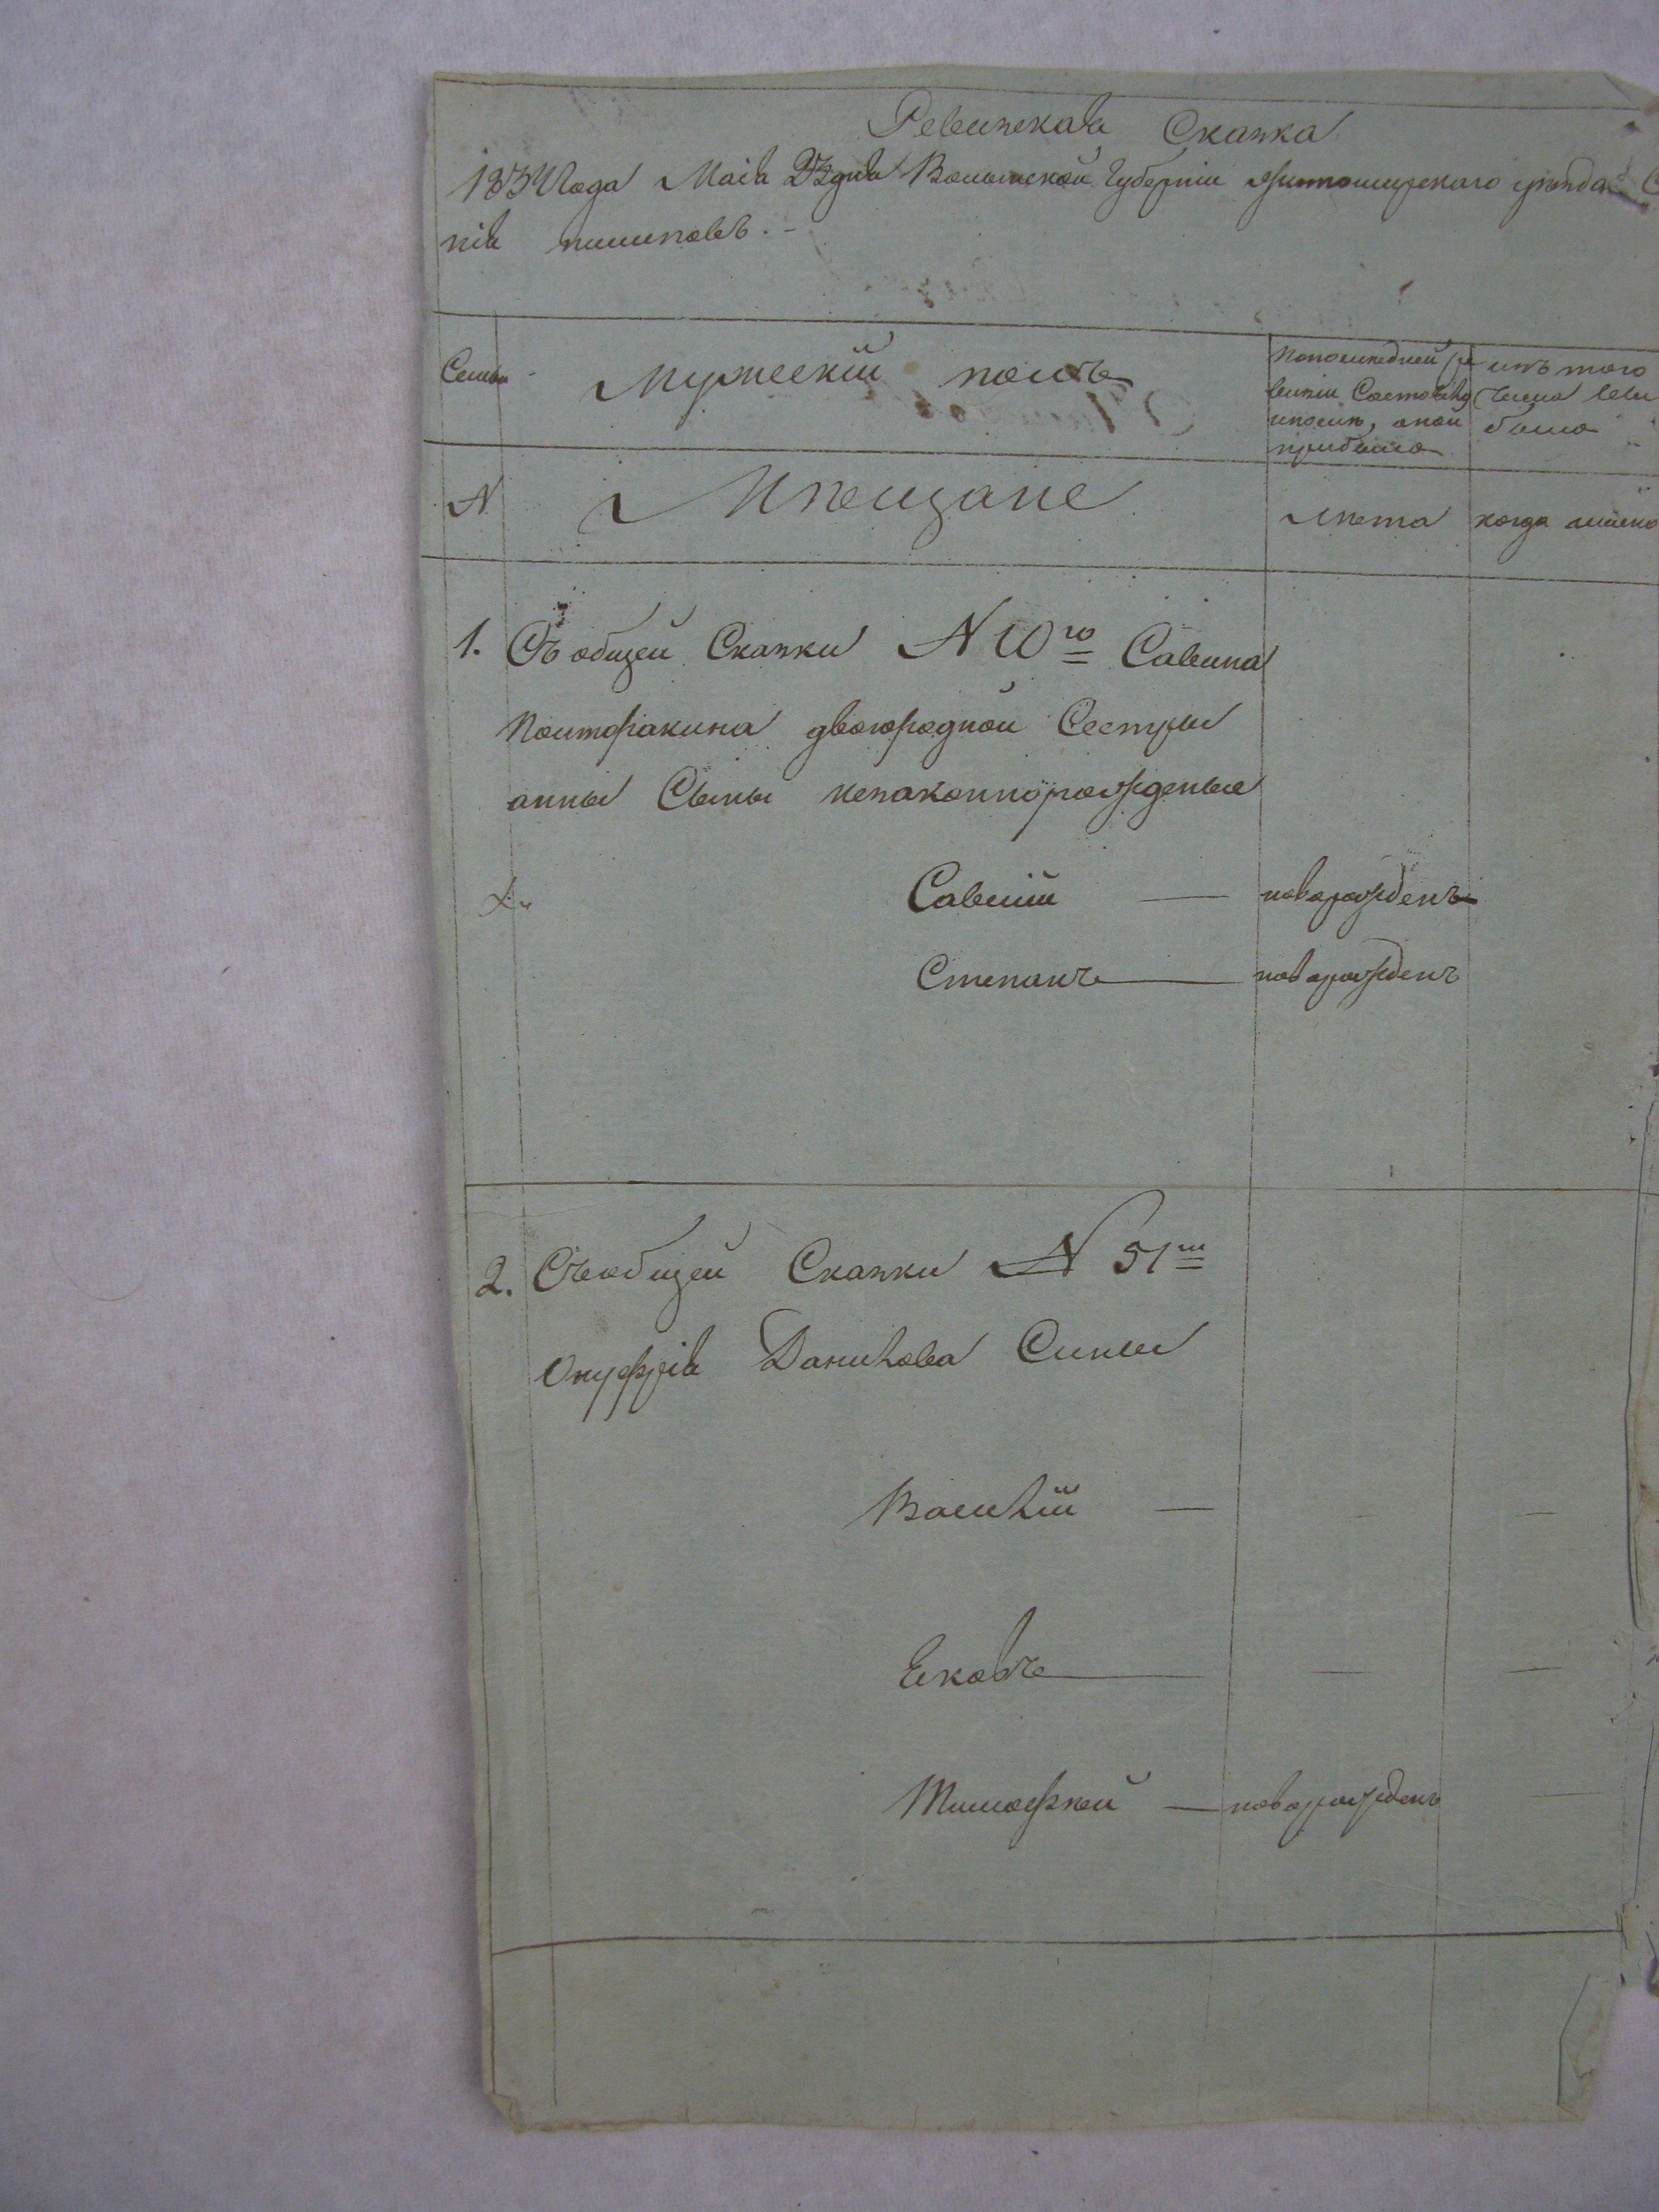 Ревизская Сказка
Маія дня Волынской Губерніи Житомирскаго уѣзда
нія
Семьи
Мужескій полъ
По послѣдней ре
визіи Состояло
и послѣ, оной
прибыло
изъ того
числа выи
было
N
Мѣщане
лѣта
когда имено
1. Съ общей Сказки N 10го Савина
двоюродной Сестры
анны Сыны незаконнорожденые
Савелій — новорожденъ
Степанъ — новорожденъ
2. Съ общей Сказки N 51й
Онуфрія Данилова Сыны
Василій —
Яковъ —
Тимофѣй — новорожденъ